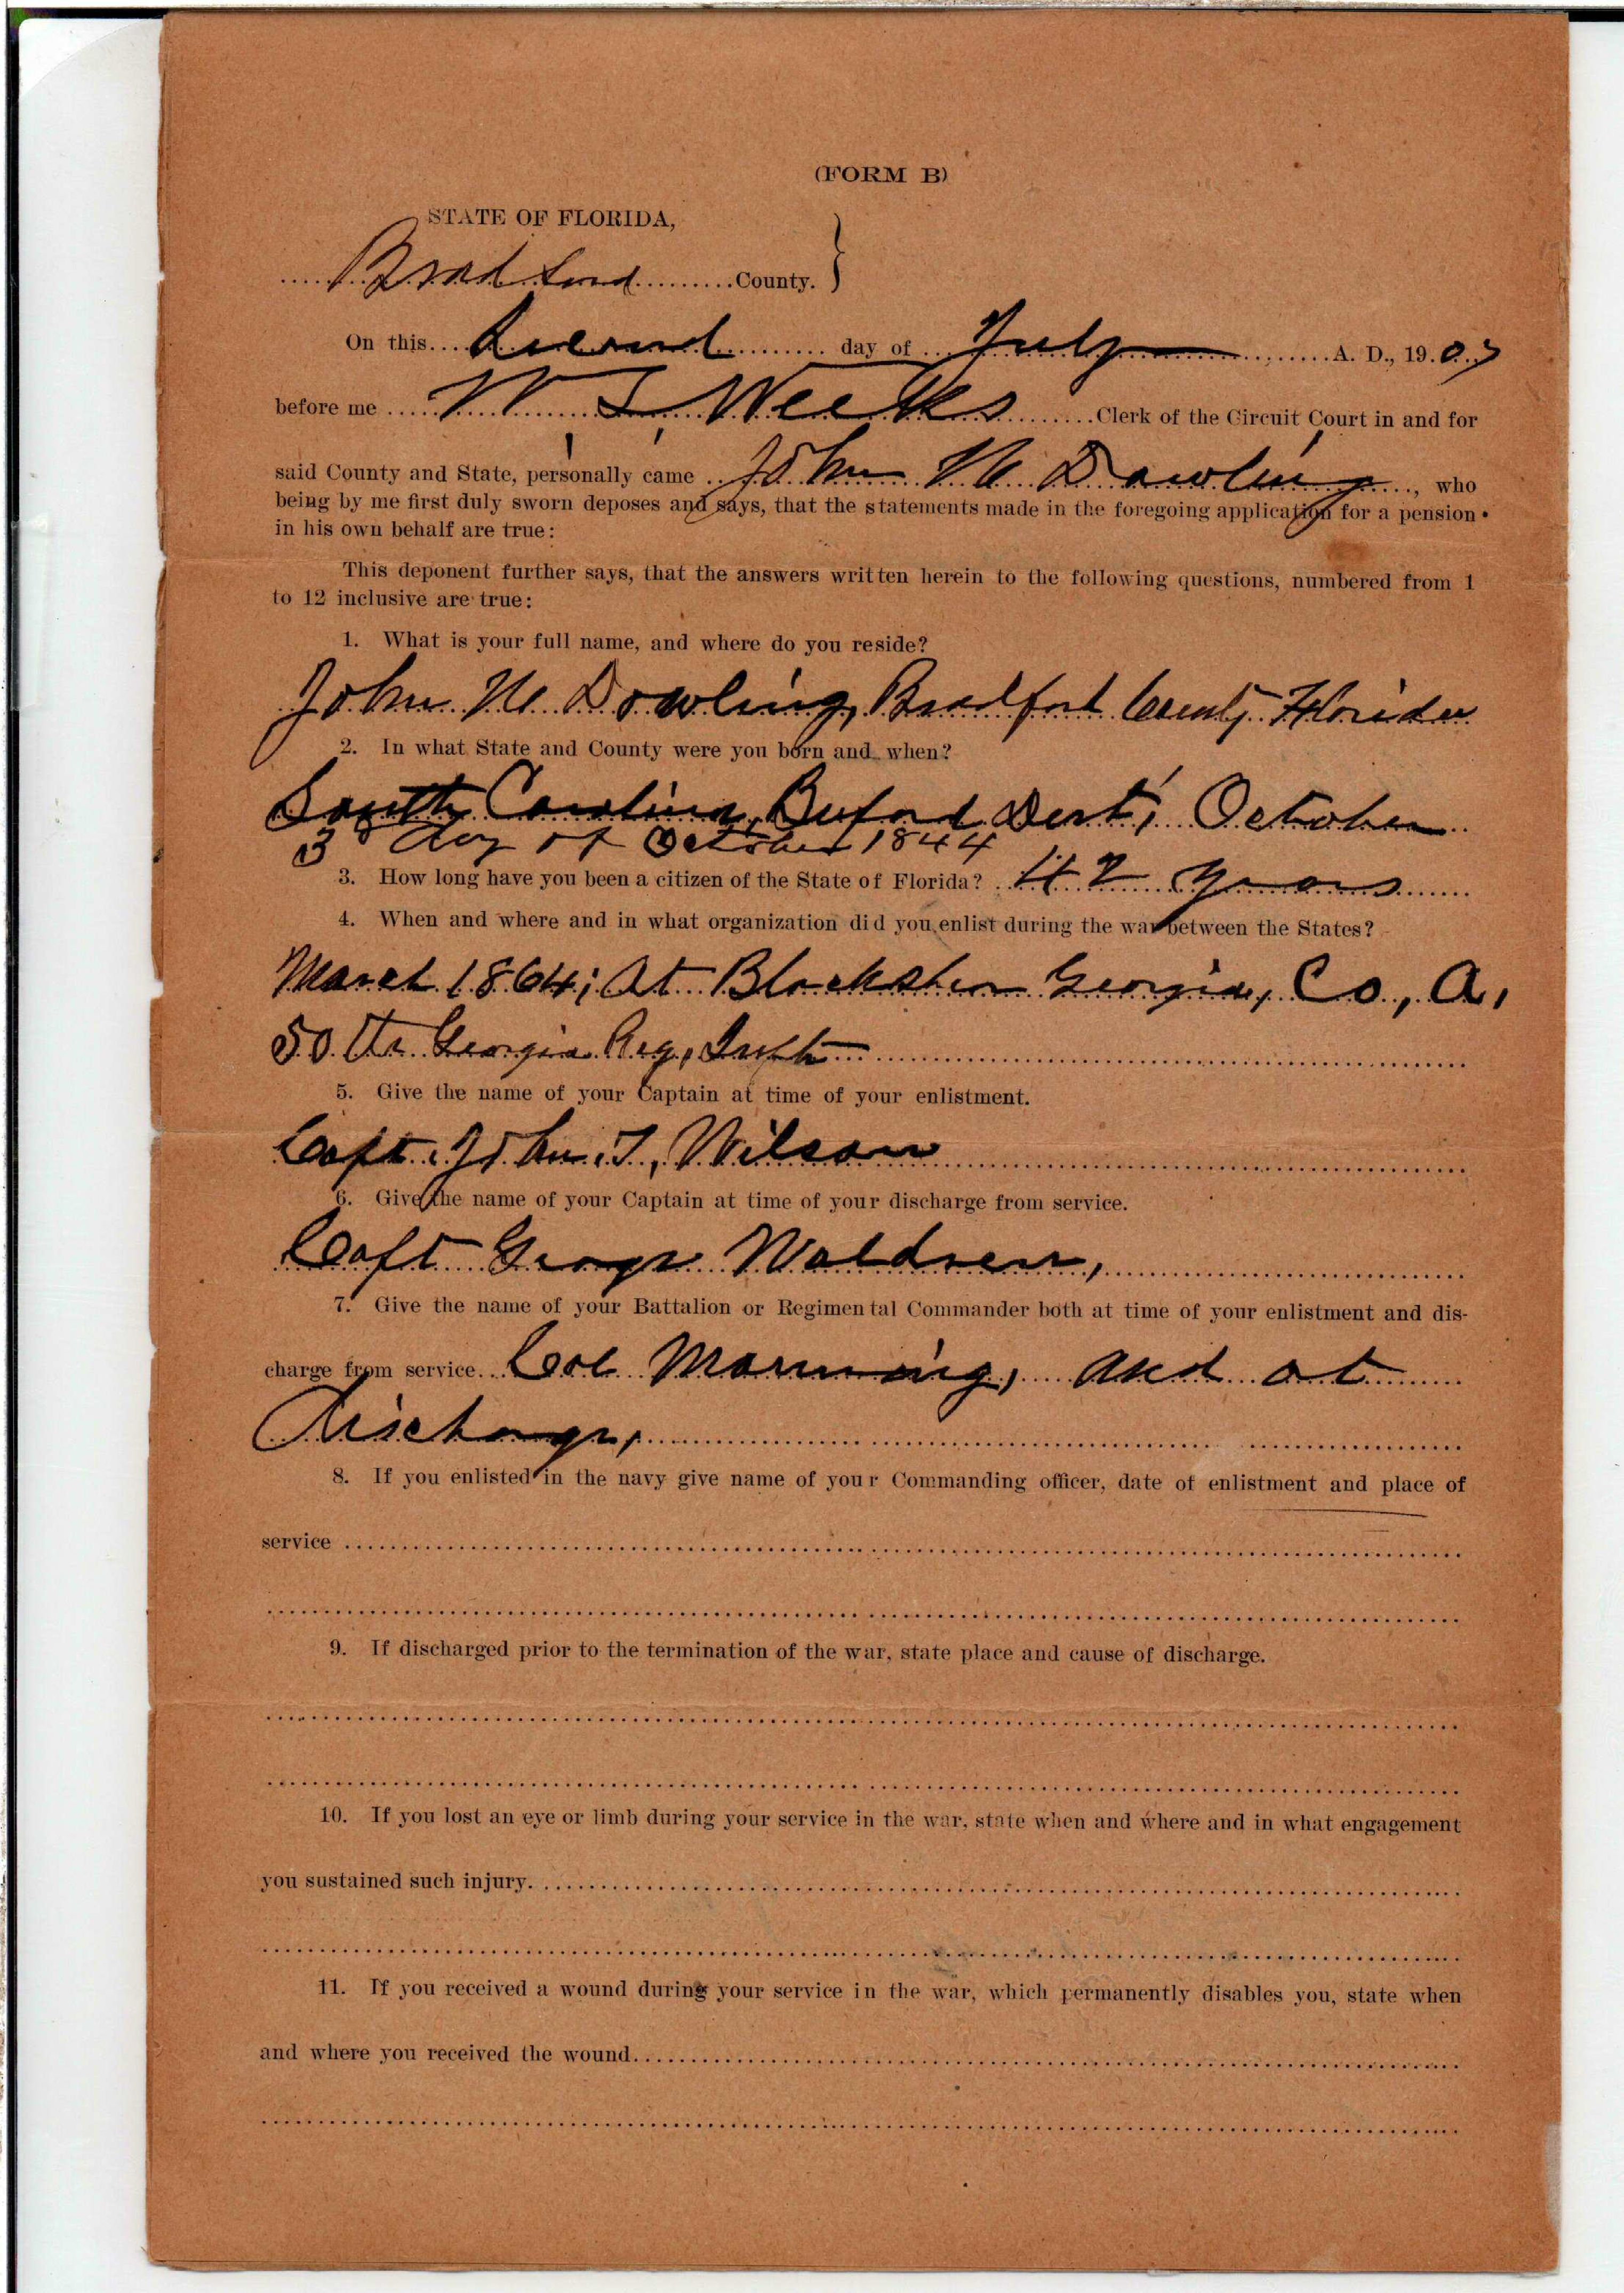 (FORM B)
STATE OF FLORIDA,
Bradford County. }
On this Second day of July A. D., 1907
before me W T Weeks Clerk of the Circuit Court in and for
said County and State, personally came John W Dowling, who
being by me first duly sworn deposes and says, that the statements made in the foregoing application for a pension
in his own behalf are true:
This deponent further says, that the answers written herein to the following questions, numbered from 1
to 12 inclusive are true:
1. What is your full name, and where do you reside?
John W Dowling, Bradford County Florida
2. In what State and County were you born and when?
South Carolina, Buford Dist, October
3rd day of October 1844
3. How long have you been a citizen of the State of Florida? 42 years
4. When and where and in what organization did you enlist during the war between the States?
March 1864; At Blackshear Georgia, Co, A,
50th Georgia Reg,
5. Give the name of your Captain at time of your enlistment.
Capt. John T, Wilson
6. Give the name of your Captain at time of your discharge from service.
Capt George Waldren,
7. Give the name of your Battalion or Regimental Commander both at time of your enlistment and dis-
charge from service. Col Manning, and at
discharge,
8. If you enlisted in the navy give name of your Commanding officer, date of enlistment and place of
service
9. If discharged prior to the termination of the war, state place and cause of discharge.
10. If you lost an eye or limb during your service in the war, state when and where and in what engagement
you sustained such injury.
11. If you received a wound during your service in the war, which permanently disables you, state when
and where you received the wound.